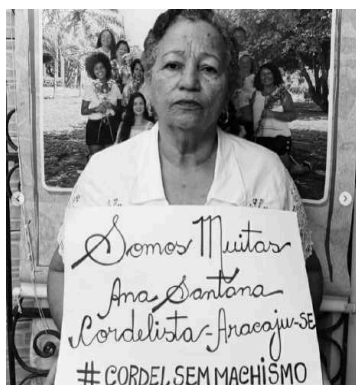 Somos Muitas
Ana Santana
Cordelista-Aracaju-SE
# CORDEL SEM MACHISMO